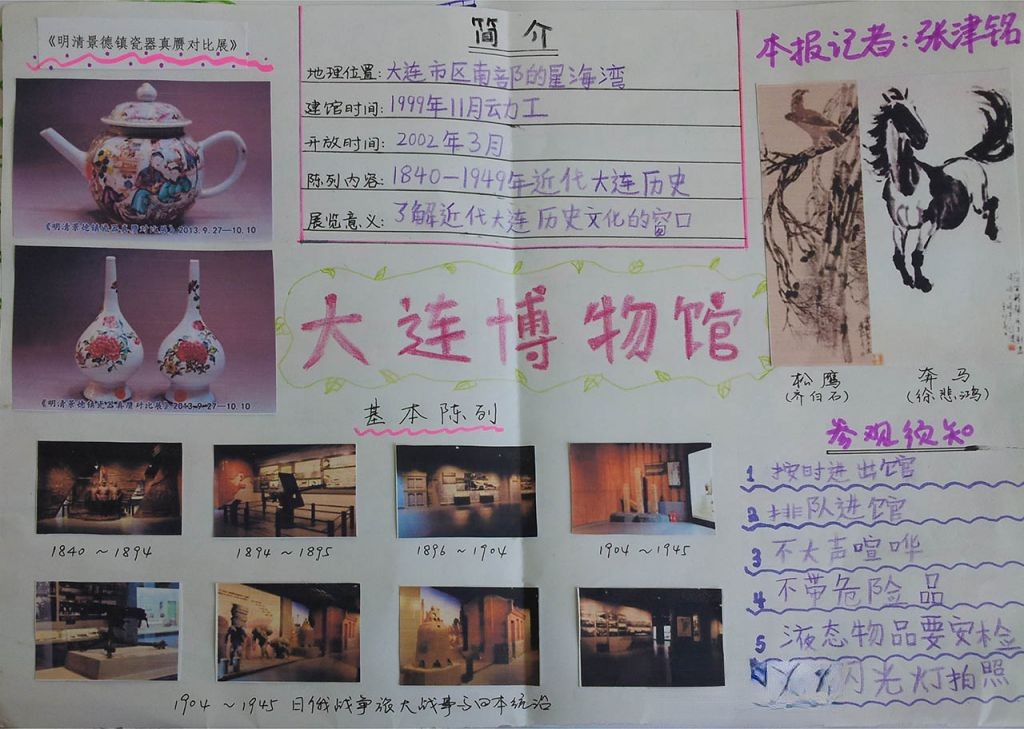 《明清景德镇瓷器真赝对比展》
《明清景德镇瓷器真赝对比展》2013.9.27—10.10
《明清景德镇瓷器真赝对比展》2013.9.27—10.10
简介
地理位置:大连市区南部的星海湾
建馆时间:1999年11月动工
开放时间:2002年3月
陈列内容:1840—1949年近代大连历史
展览意义:了解近代大连历史文化的窗口
本报记者:张津铭
大连博物馆
松鹰
(齐白石)
奔马
(徐悲鸿)
基本陈列
1840～1894
1894～1895
1896～1904
1904～1945
1904～1945 日俄战争旅大战事与日本统治
参观须知
1 按时进出馆
2 排队进馆
3 不大声喧哗
4 不带危险品
5 液态物品要安检
闪光灯拍照